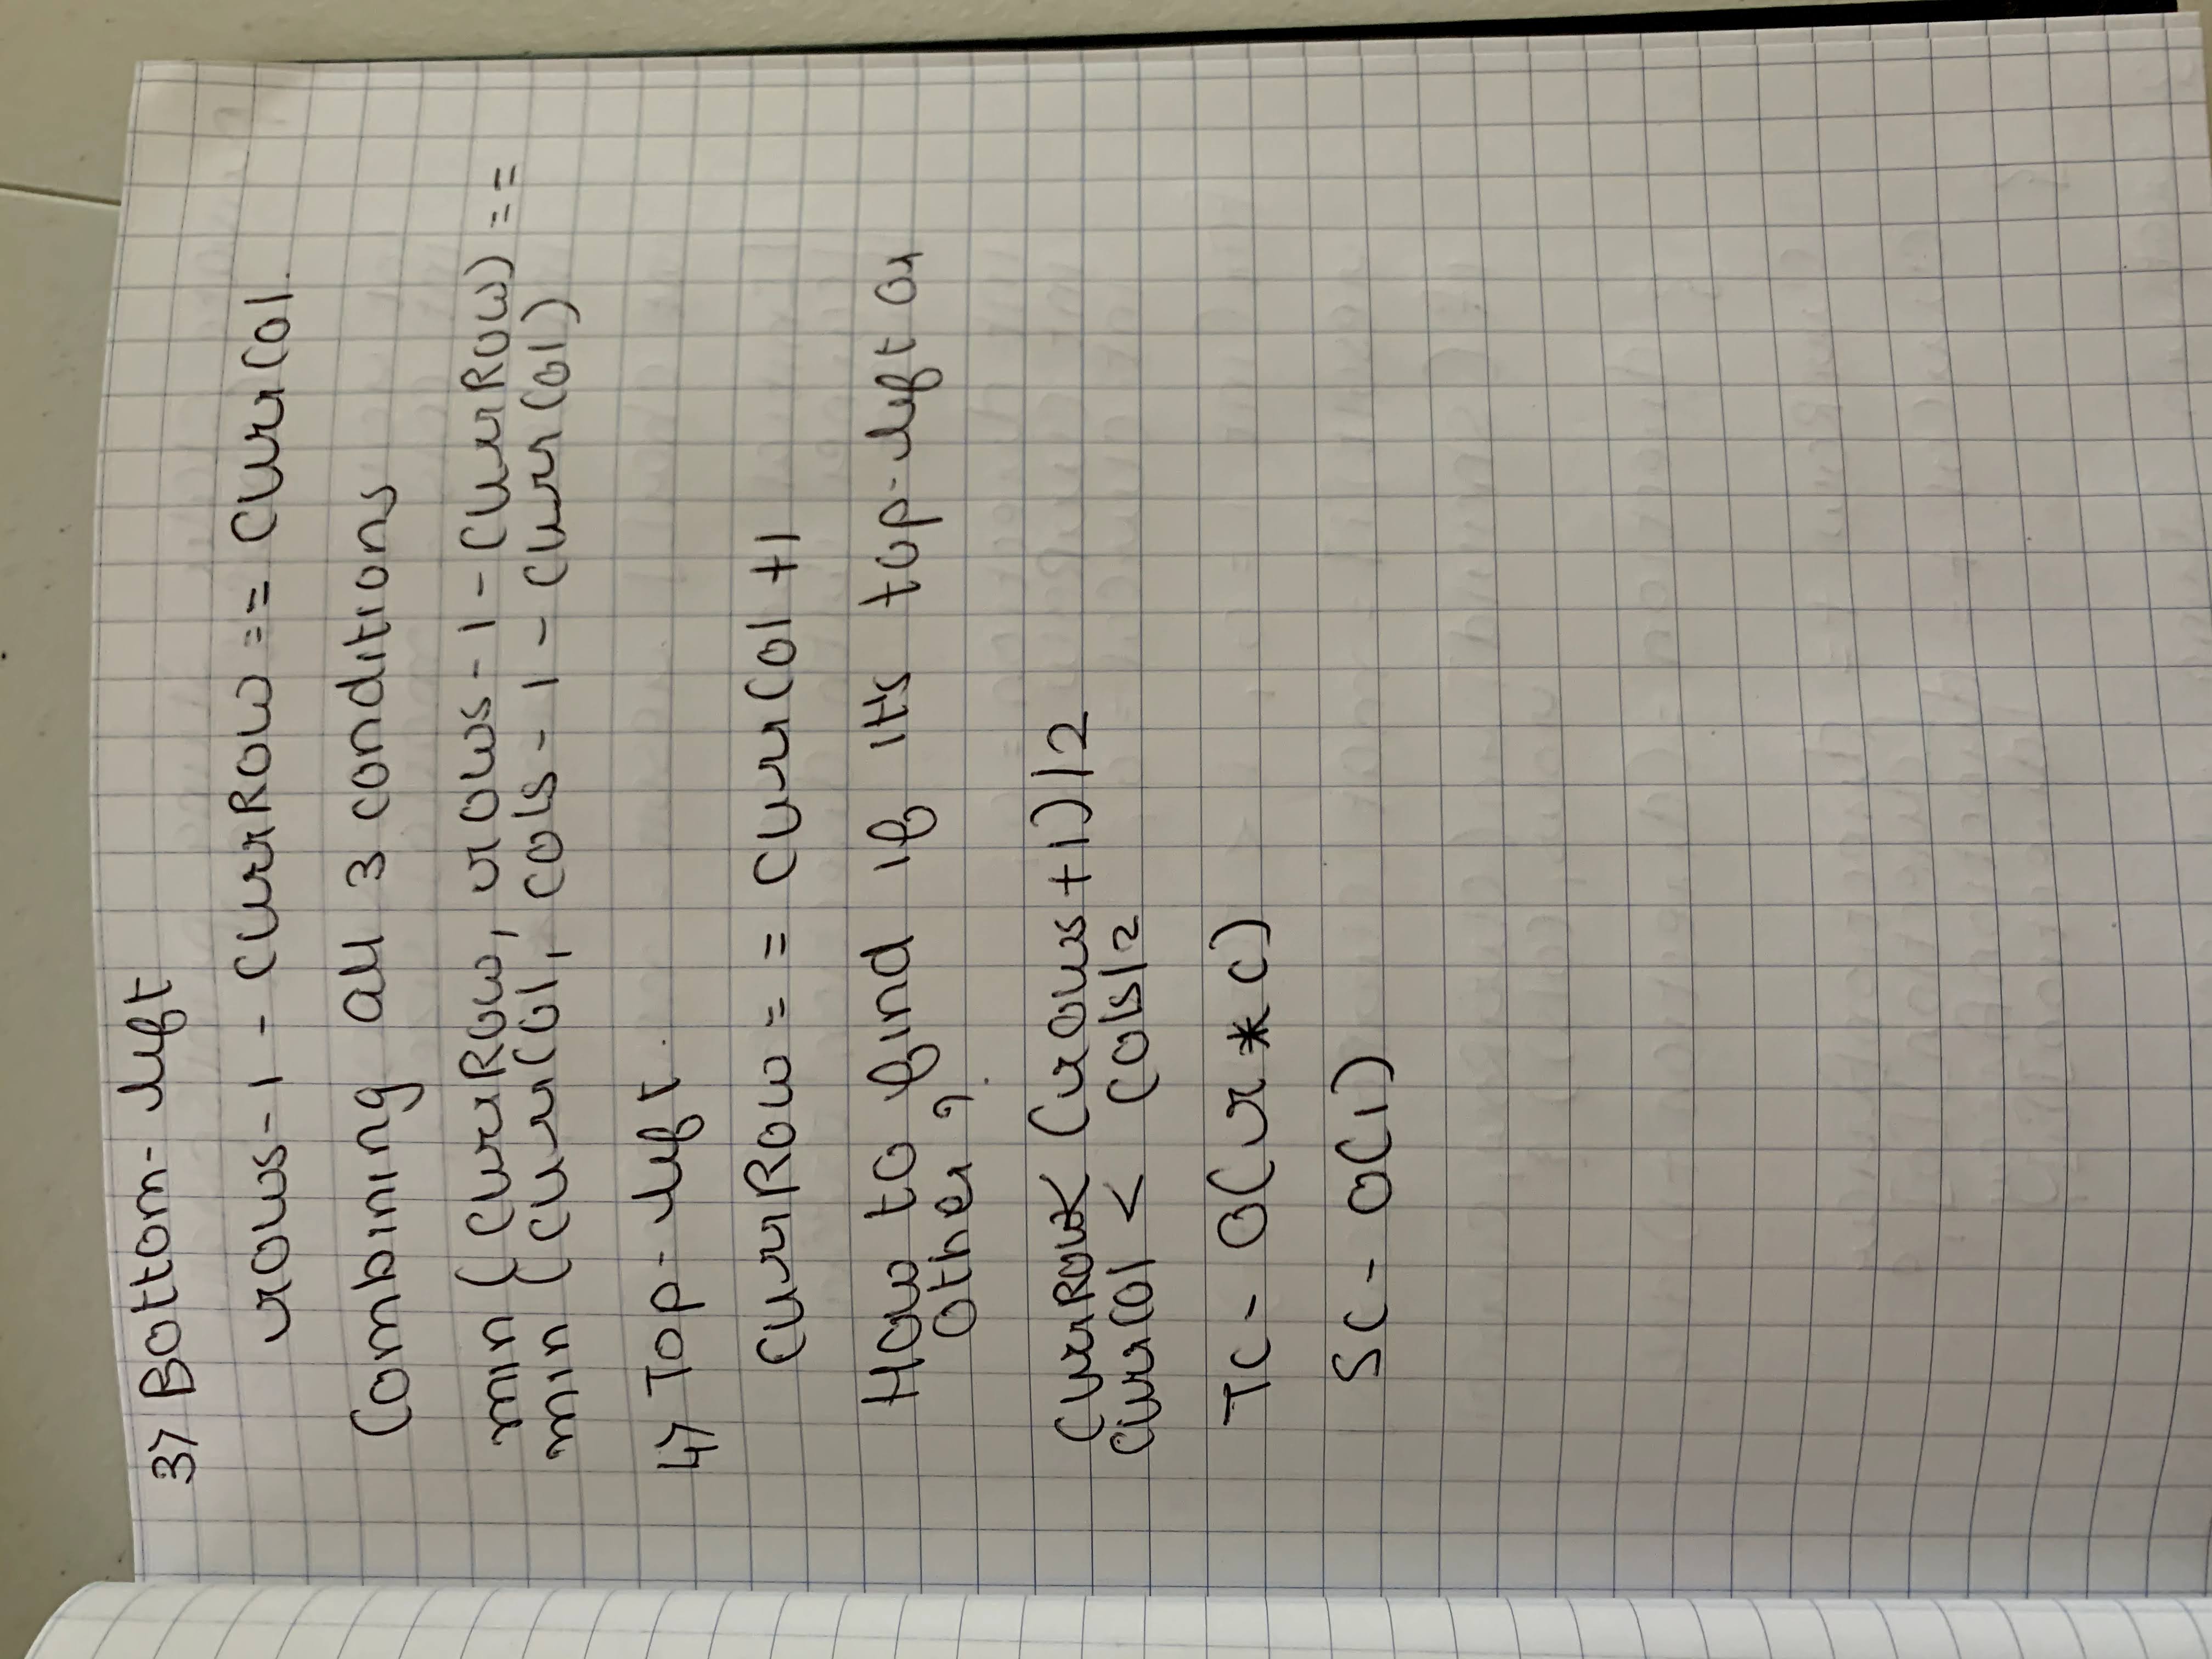 3) Bottom-left
rows-1-currRow == currCol.
Combining all 3 conditions
min (currRow, rows-1-currRow) ==
min (currCol, cols-1-currCol)
4) Top-left.
currRow == currCol+1
How to find if it's top-left or
other ?
currRow < (rows+1)/2
currCol < cols/2
TC - O(r * c)
SC - O(1)